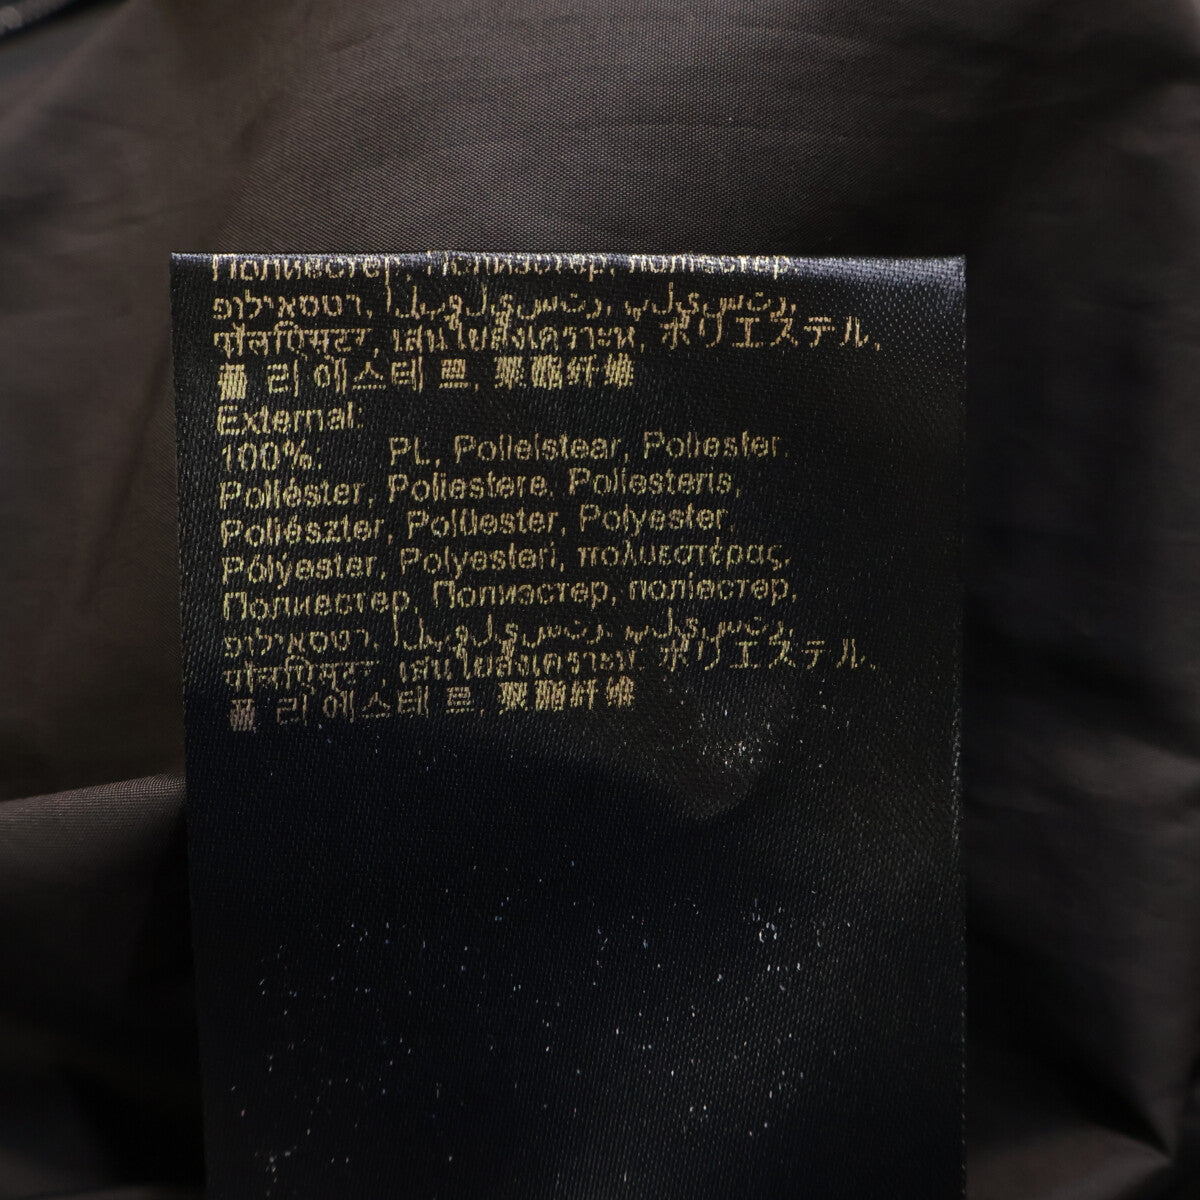 Полиестер, Полиэстер, поліестер,
פוליאסטר, البوليستر, پلی‌استر,
पॉलिएस्टर, เส้นใยสังเคราะห์, ポリエステル,
폴리에스테르, 聚酯纤维
External:
100%. PL, Polleistear, Poliester,
Poliéster, Poliestere, Poliesteris,
Poliészter, Poliester, Polyester,
Pólyester, Polyesteri, πολυεστέρας,
Полиестер, Полиэстер, поліестер,
פוליאסטר, البوليستر, پلی‌استر,
पॉलिएस्टर, เส้นใยสังเคราะห์, ポリエステル,
폴리에스테르, 聚酯纤维